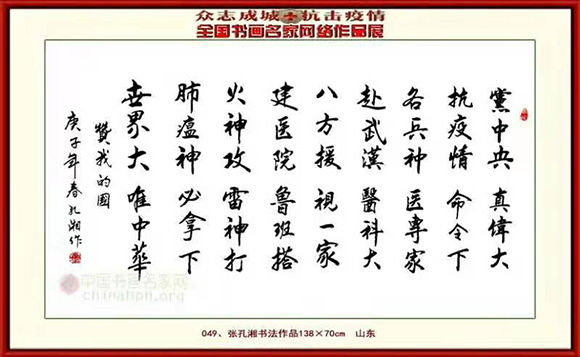 众志成城 抗击疫情
全国书画名家网络作品展
黨中央 真偉大
抗疫情 命令下
各兵种 医專家
赴武漢 醫科大
八方援 視一家
建医院 魯班搭
火神攻 雷神打
肺瘟神 必拿下
世界大 唯中華
贊我的國
庚子年春孔湘作
中国书画名家网
chinahpn.org
049、张孔湘书法作品138×70cm 山东